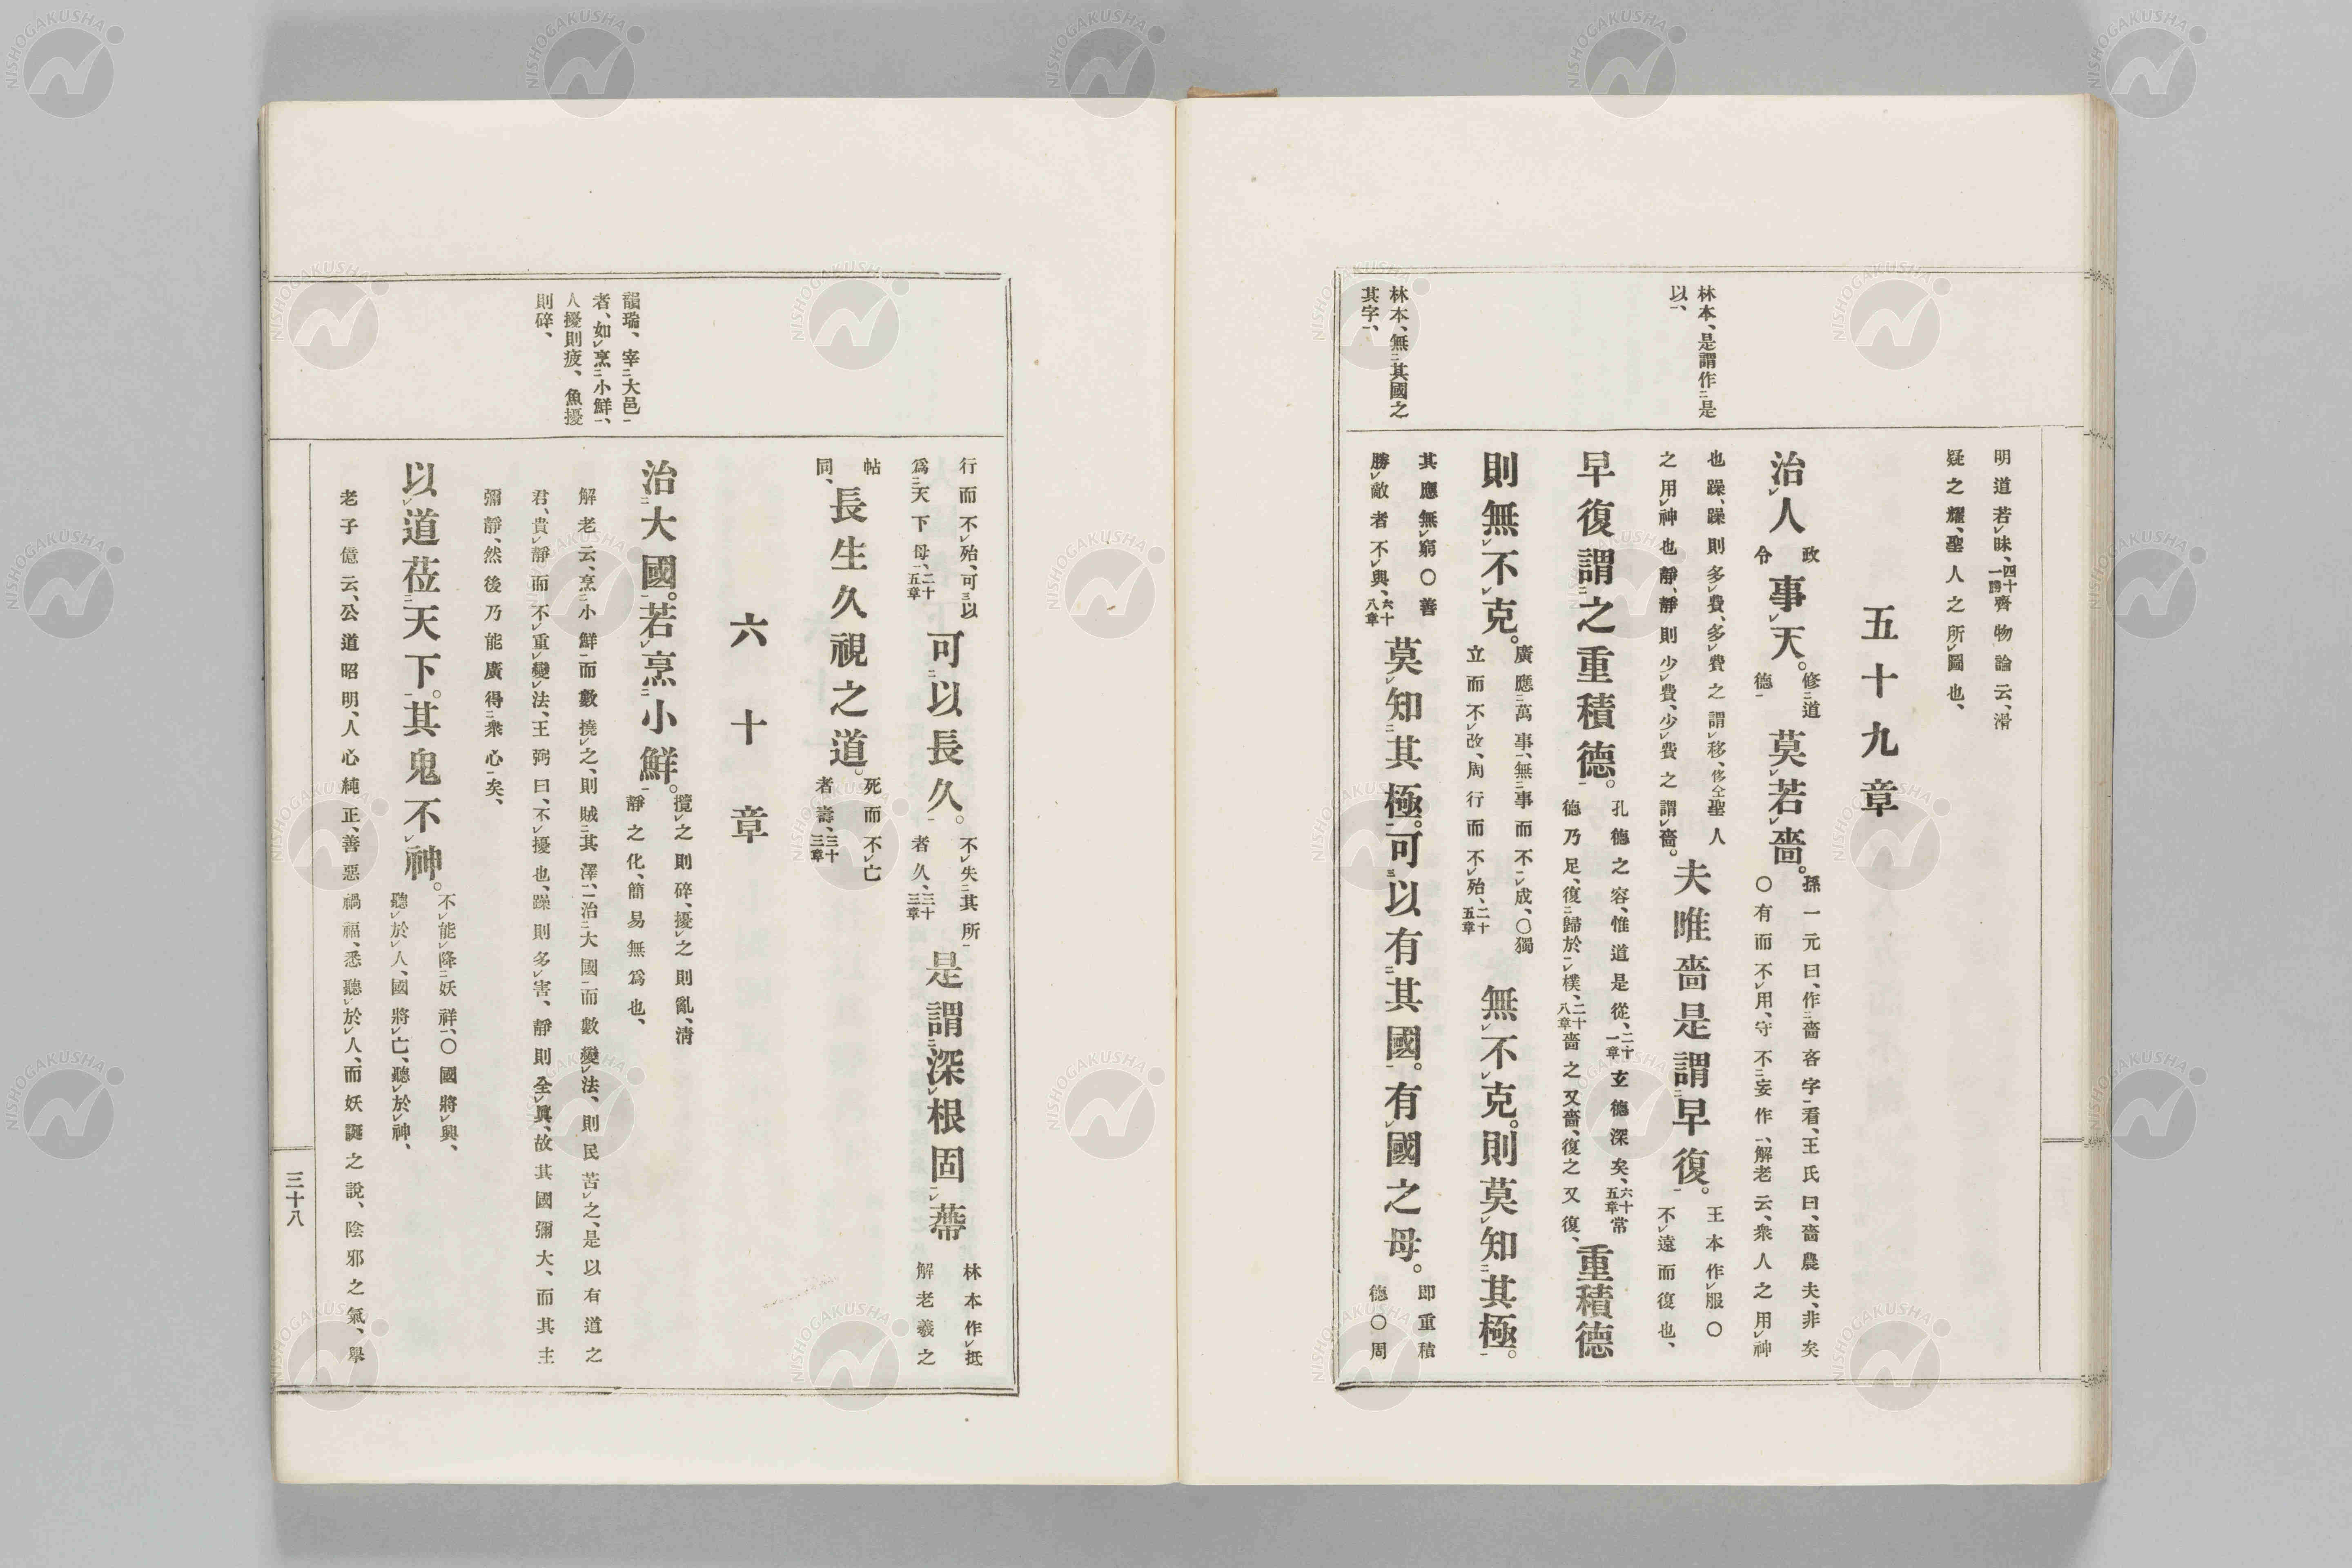 明道若㆑昧、四十一章齊物論云、滑
疑之耀、聖人之所㆑圖也、
五十九章
林本、是謂作㆓是
以㆒、
治㆑人政令事㆑天。修㆓道德㆒莫㆑若㆑嗇。孫一元曰、作㆓嗇吝字㆒看、王氏曰、嗇農夫、非矣
〇有而不㆑用、守不㆓妄作㆒、解老云、衆人之用㆑神
也躁、躁則多㆑費、多㆑費之謂㆑侈、侈仝聖人
之用㆑神也靜、靜則少㆑費、少㆑費之謂㆑嗇。夫唯嗇是謂㆓早復㆒。王本作㆑服〇
不㆑遠而復也、
早復謂㆓之重積德㆒。孔德之容、惟道是從、二十一章玄德深矣、六十五章常
德乃足、復㆓歸於㆒㆑樸、二十八章嗇之又嗇、復之又復、重積德
則無㆑不㆑克。廣應㆓萬事㆒、無㆓事而不㆒㆑成、〇獨
立而不㆑改、周行而不㆑殆、二十五章無㆑不㆑克。則莫㆑知㆓其極㆒。
林本、無㆓其國之
其字㆒、
其應無㆑窮〇善
勝㆑敵者不㆑與、六十八章莫㆑知㆓其極㆒。可㆔以有㆓其國㆒。有㆑國之母。即重積
德〇周
行而不㆑殆、可㆔以
爲㆓天下母㆒、二十五章可㆓以長久㆒。不㆑失㆓其所㆒
者久、三十三章是謂㆓深㆑根固㆒㆑蔕林本作㆑抵
解老羲之
帖
同、長生久視之道。死而不㆑亡
者壽、三十三章
六十章
韻瑞、宰㆓大邑㆒
者、如㆑烹㆓小鮮㆒、
人擾則疲、魚擾
則碎、
治㆓大國㆒。若㆑烹㆓小鮮㆒。攪㆑之則碎、擾㆑之則亂、淸
靜之化、簡易無爲也、
解老云、烹㆓小鮮㆒而數撓㆑之、則賊㆓其澤㆒、治㆓大國㆒而數變㆑法、則民苦㆑之、是以有道之
君、貴㆑靜而不㆑重㆑變㆑法、王弼曰、不㆑擾也、躁則多㆑害、靜則全㆑眞、故其國彌大、而其主
彌靜、然後乃能廣得㆓衆心㆒矣、
以㆑道莅㆓天下㆒。其鬼不㆑神。不㆑能㆑降㆓妖祥㆒、〇國將㆑興、
聽㆑於㆑人、國將㆑亡、聽㆑於㆑神、
老子億云、公道昭明、人心純正、善惡禍福、悉聽㆑於㆑人、而妖誕之說、陰邪之氣、擧
三十八
NISHOGAKUSHA